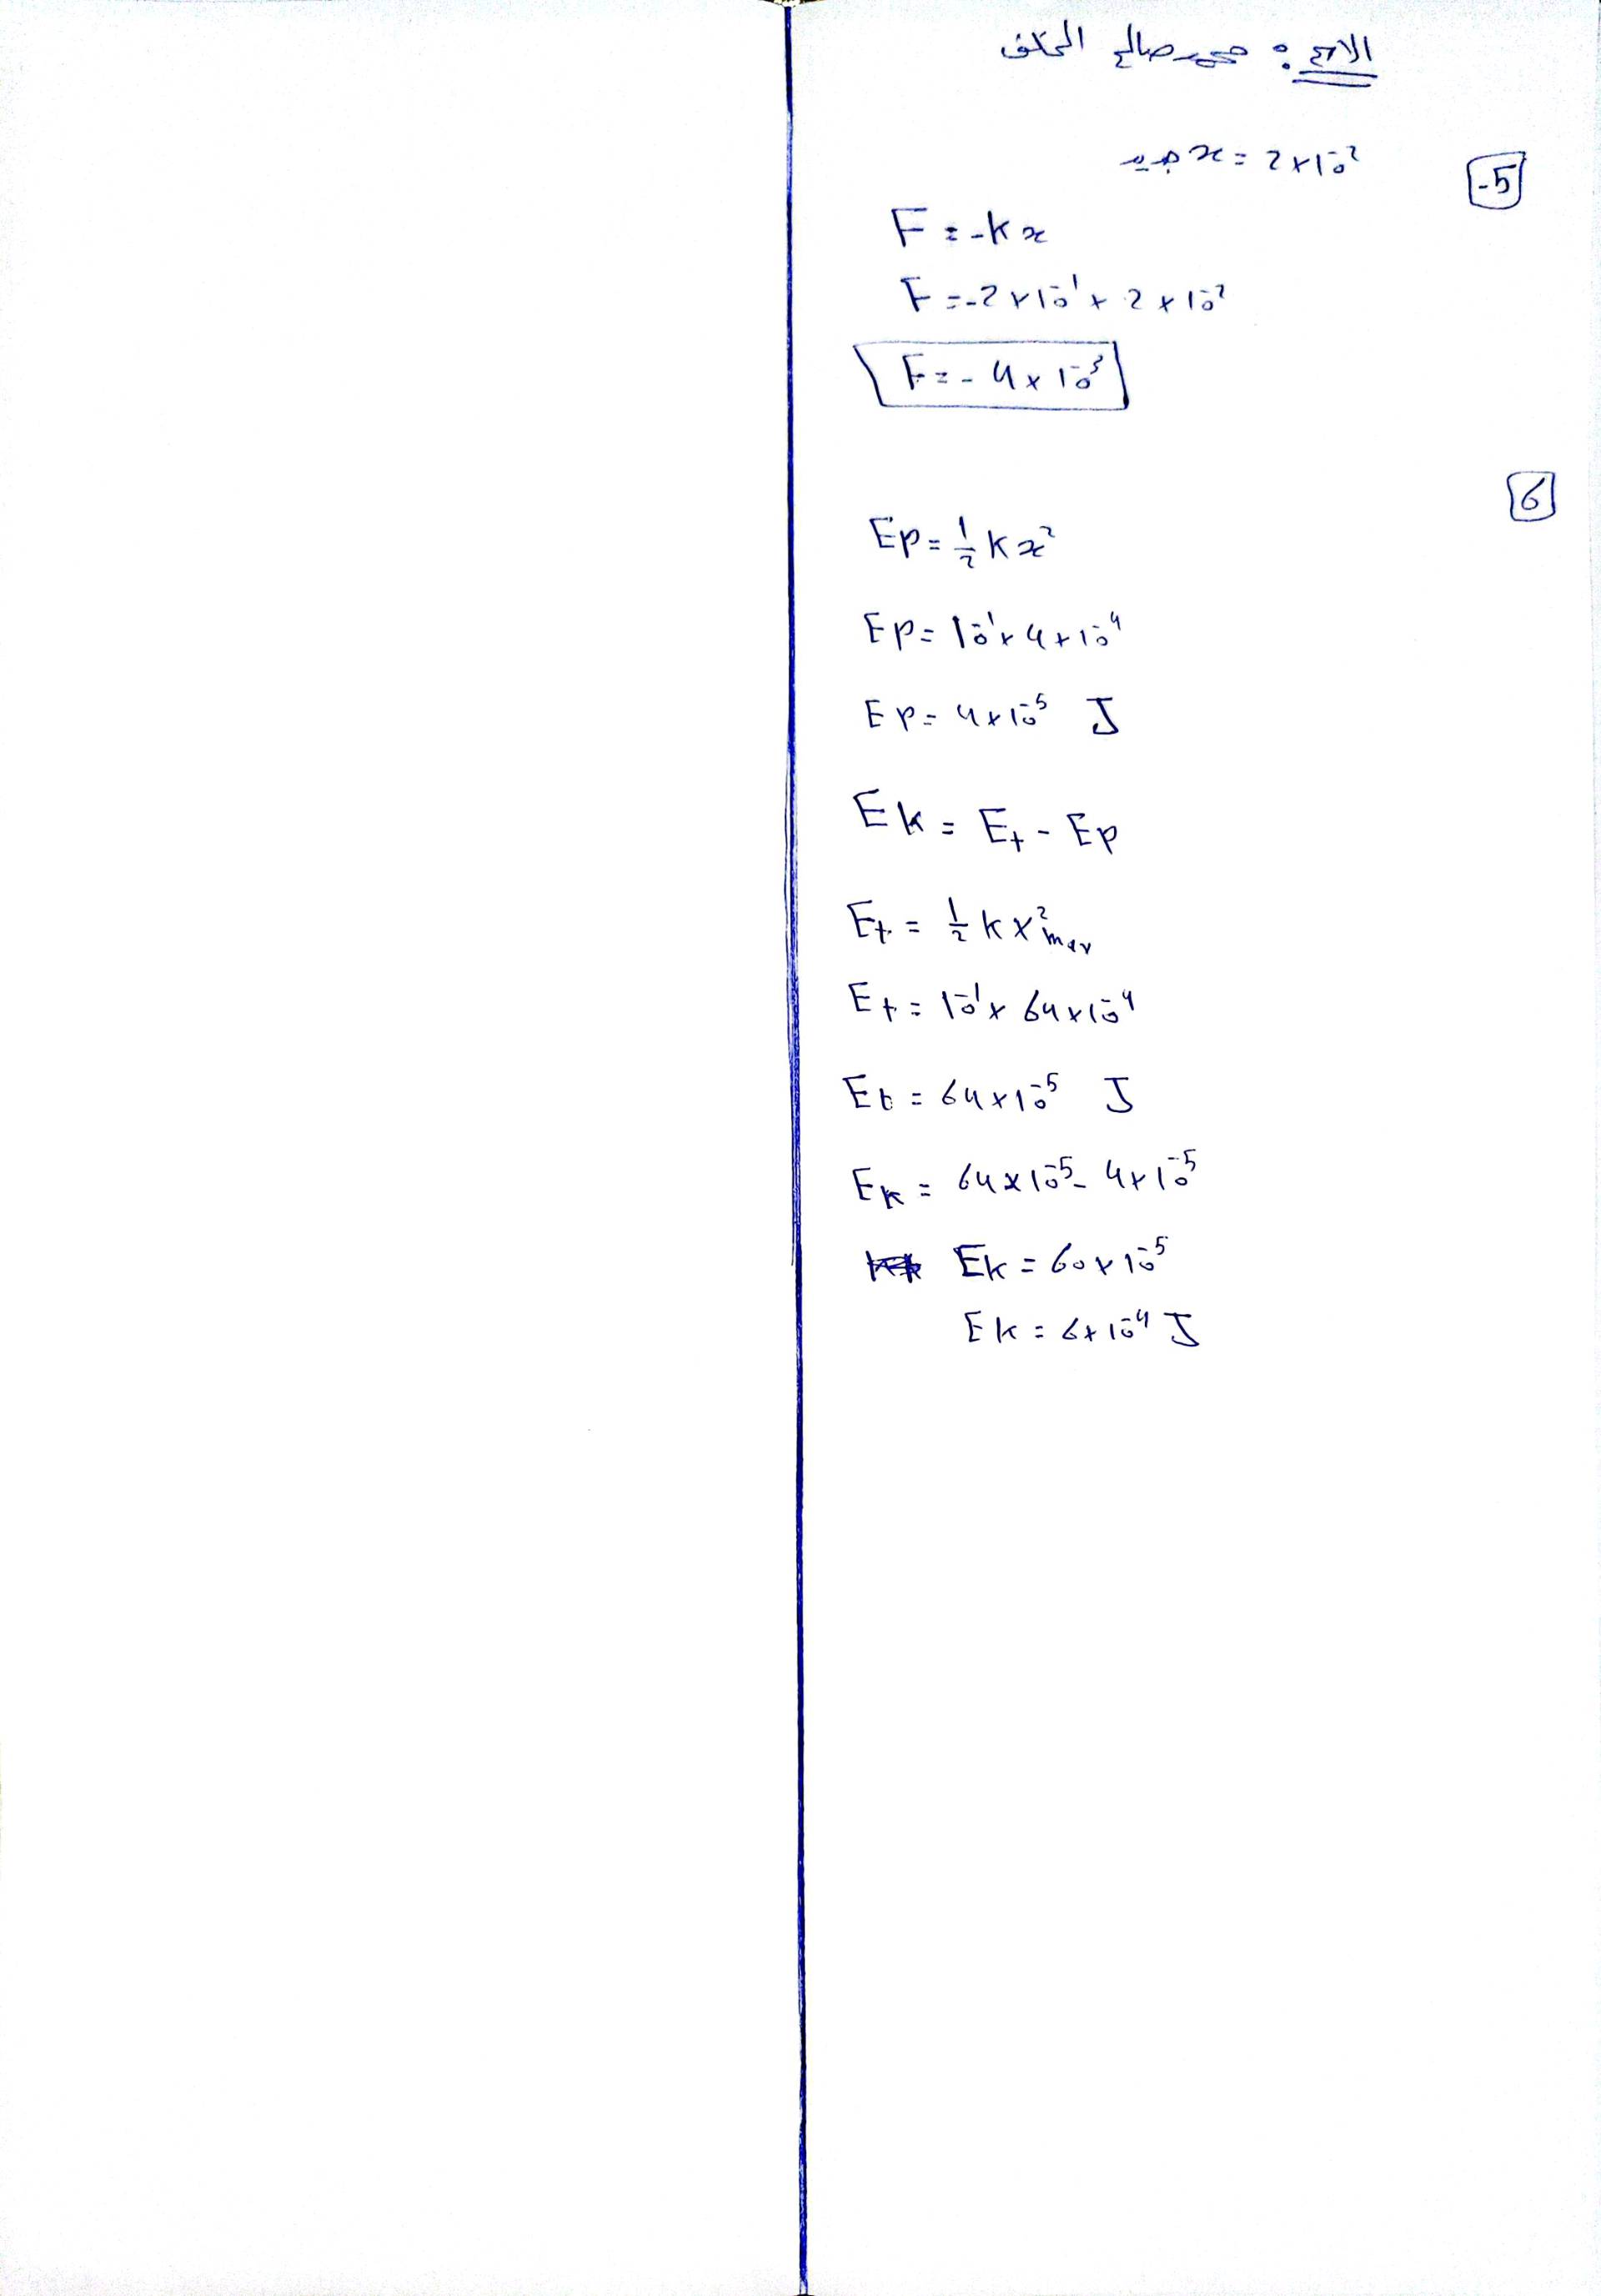 الاسم : محمد صالح الخلف
5-
جديد x = 2×10⁻²
F = -k x
F = -2×10⁻¹ × 2×10⁻²
F = - 4×10⁻³
6
Ep = 1/2 k x²
Ep = 10⁻¹ × 4×10⁻⁴
Ep = 4×10⁻⁵ J
Ek = Et - Ep
Et = 1/2 k x²max
Et = 10⁻¹ × 64×10⁻⁴
Et = 64×10⁻⁵ J
Ek = 64×10⁻⁵ - 4×10⁻⁵
Ek = 60×10⁻⁵
Ek = 6×10⁻⁴ J